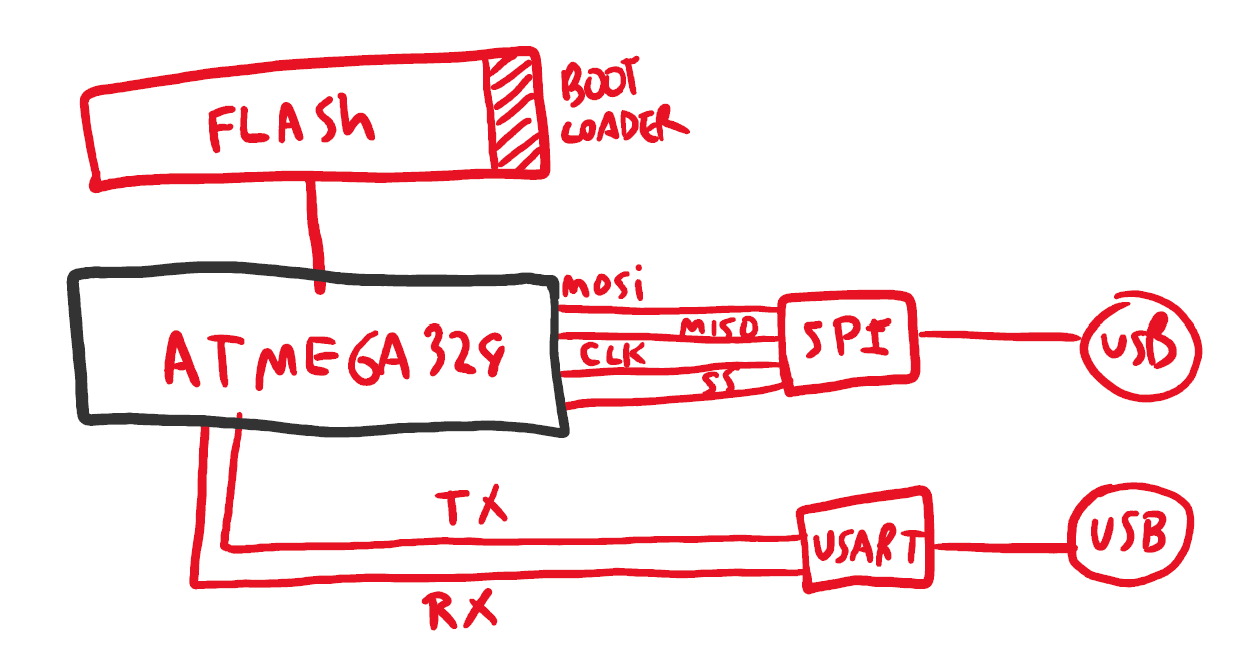 FLASh
BOOT
LOADER
ATMEGA328
MOSi
MISO
CLK
SS
SPI
USB
TX
RX
USART
USB